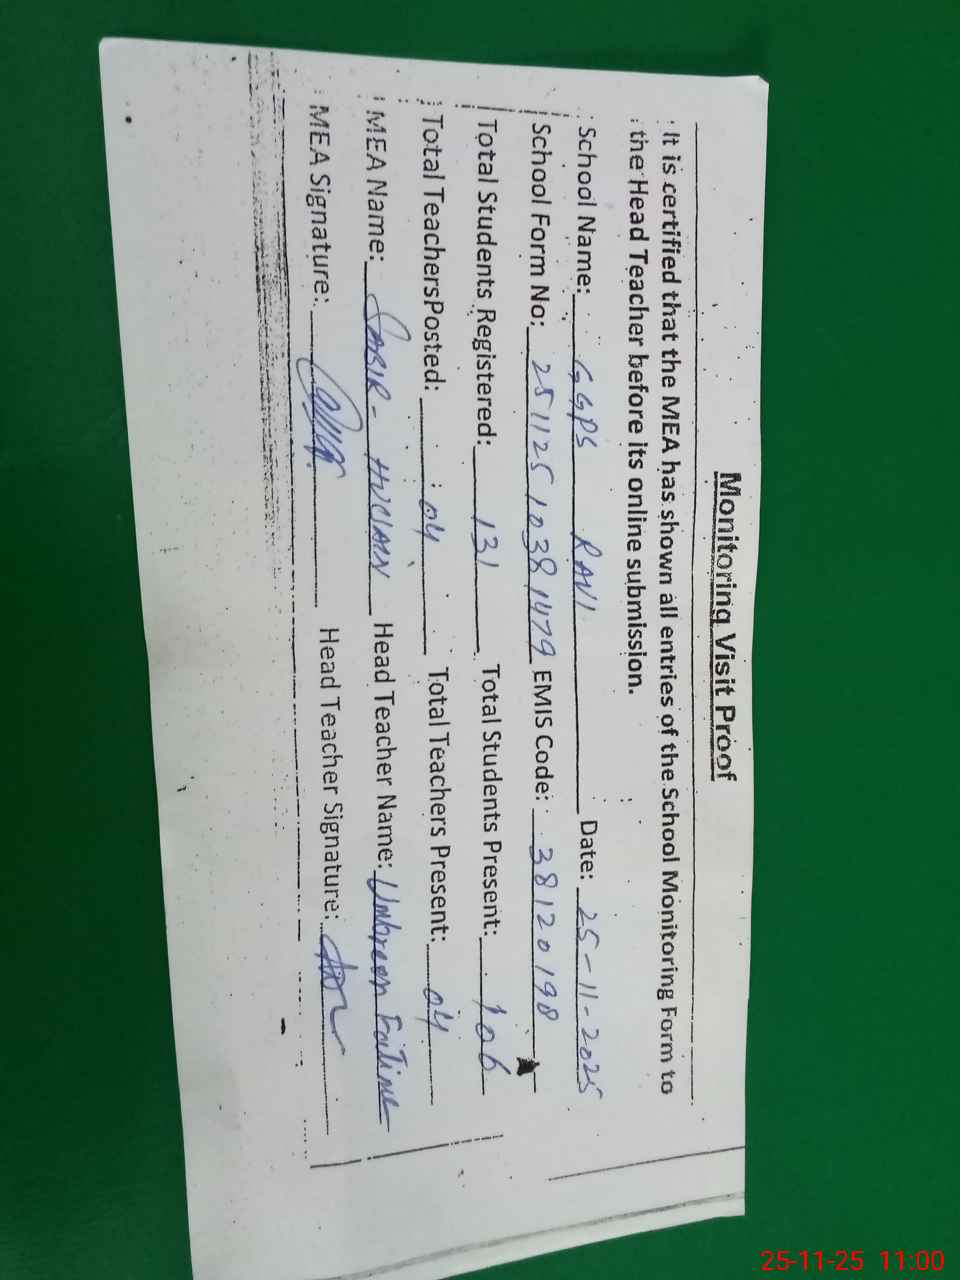 Monitoring Visit Proof
It is certified that the MEA has shown all entries of the School Monitoring Form to
the Head Teacher before its online submission.
School Name: GGPS RAVI Date: 25-11-2025
School Form No: 25112510381479 EMIS Code: 38120198
Total Students Registered: 131 Total Students Present: 106
Total TeachersPosted: 04 Total Teachers Present: 04
MEA Name: SABIR - HUSSAIN Head Teacher Name: Umbreen Fatima
MEA Signature: Head Teacher Signature:
25-11-25 11:00